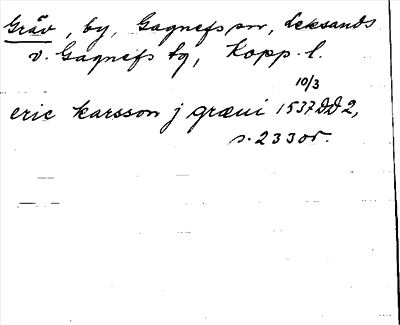 Gräv, by, Gagnefs sn, Leksands
o. Gagnefs tg, Kopp. l.
10/3
eric karsson j græui 1537 DD 2,
s. 233 or.